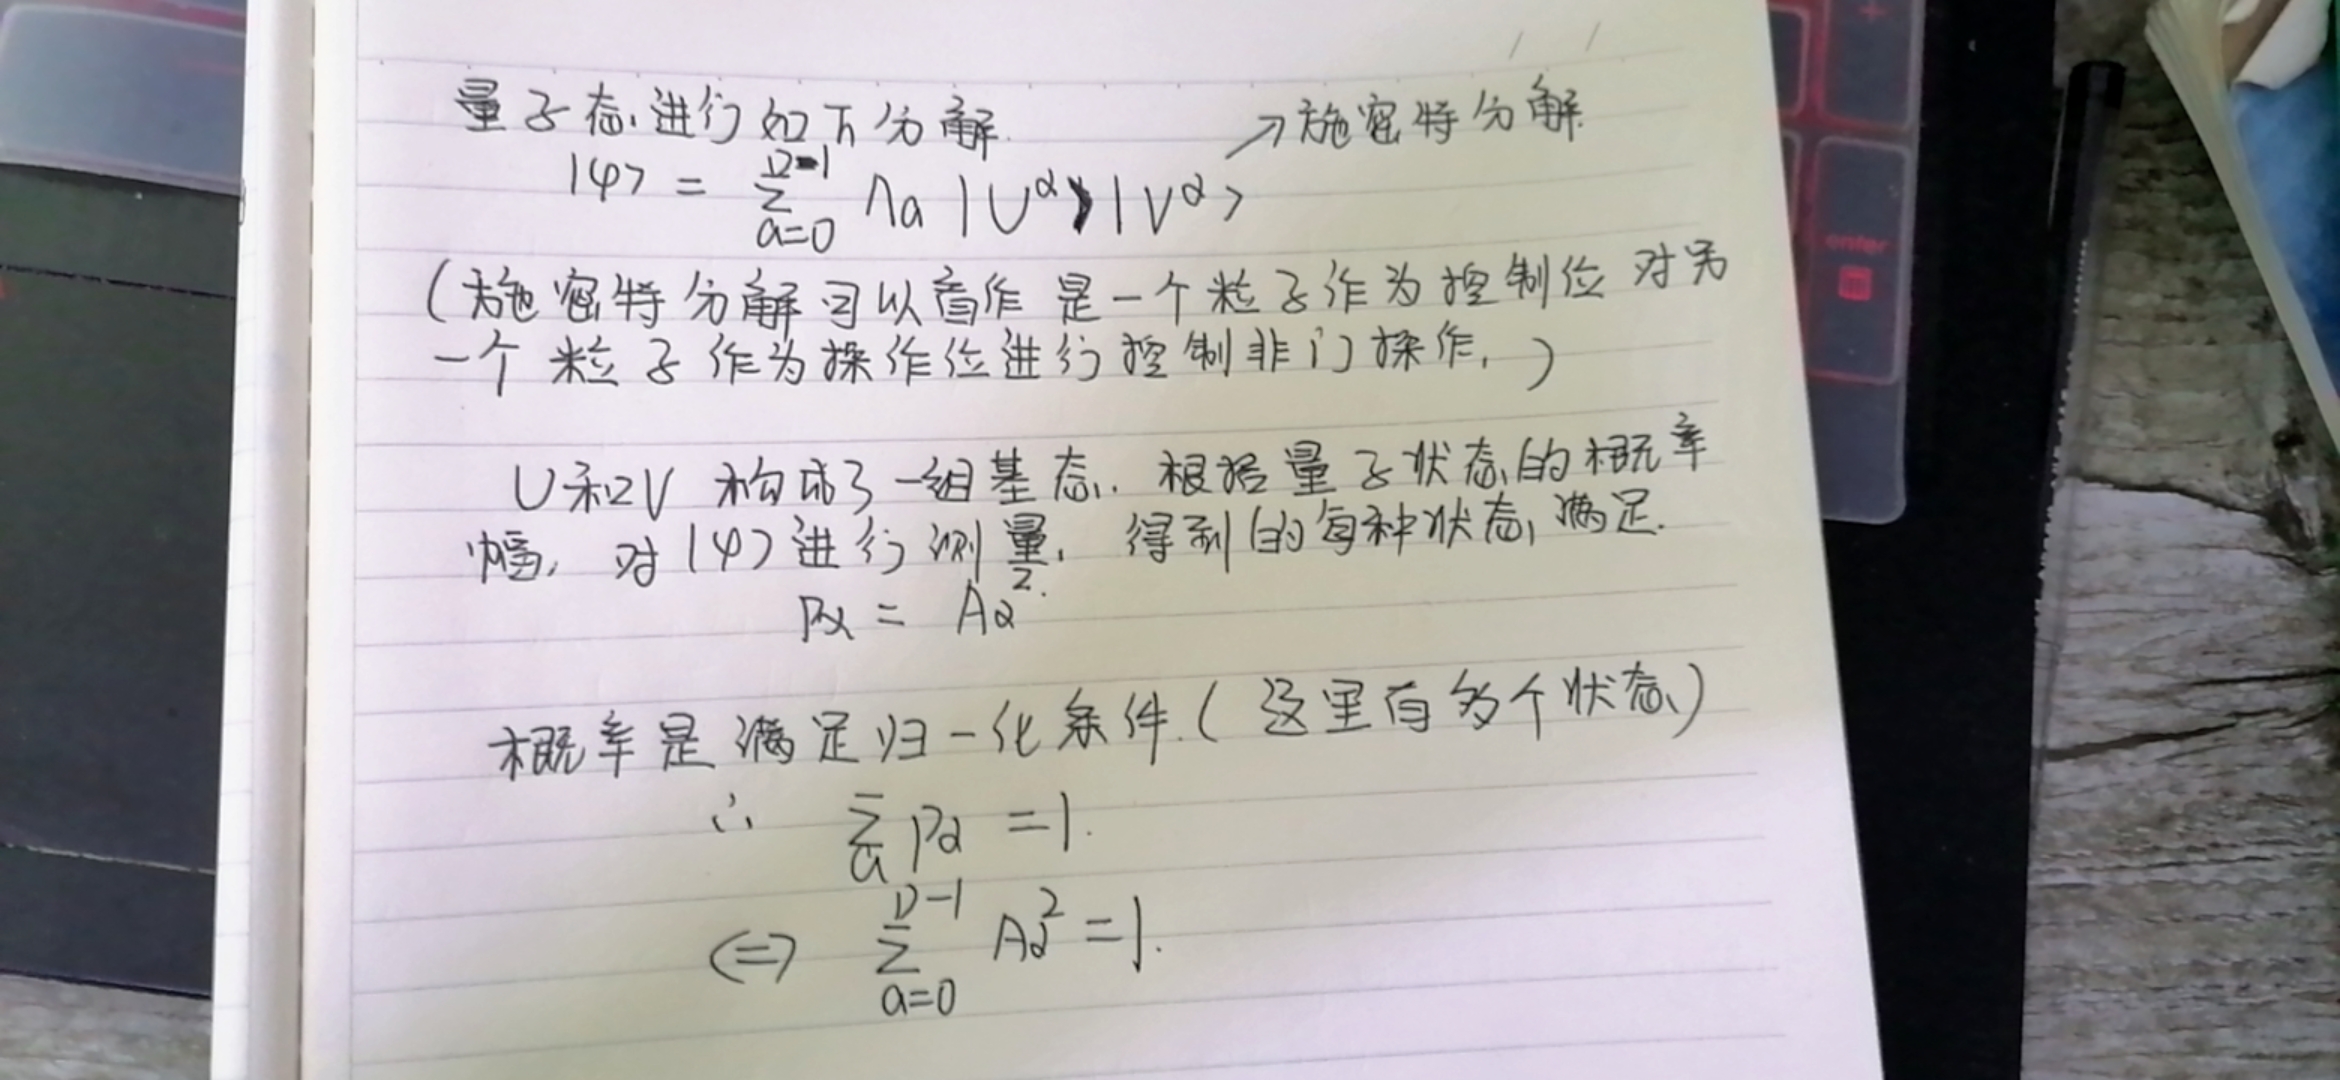 量子态进行如下分解. →施密特分解.
|φ> = Σ_{a=0}^{D-1} Λa |U^α>|V^α>
(施密特分解可以看作 是一个粒子作为控制位 对另
一个粒子作为操作位进行控制非门操作.)
U和V 构成了一组基态. 根据量子状态的概率
幅, 对|φ>进行测量, 得到的每种状态满足.
Pα = Aα².
概率是满足归一化条件.(这里有多个状态)
∴ Σ_a Pα =1.
<=> Σ_{a=0}^{D-1} Aα² =1.
enter